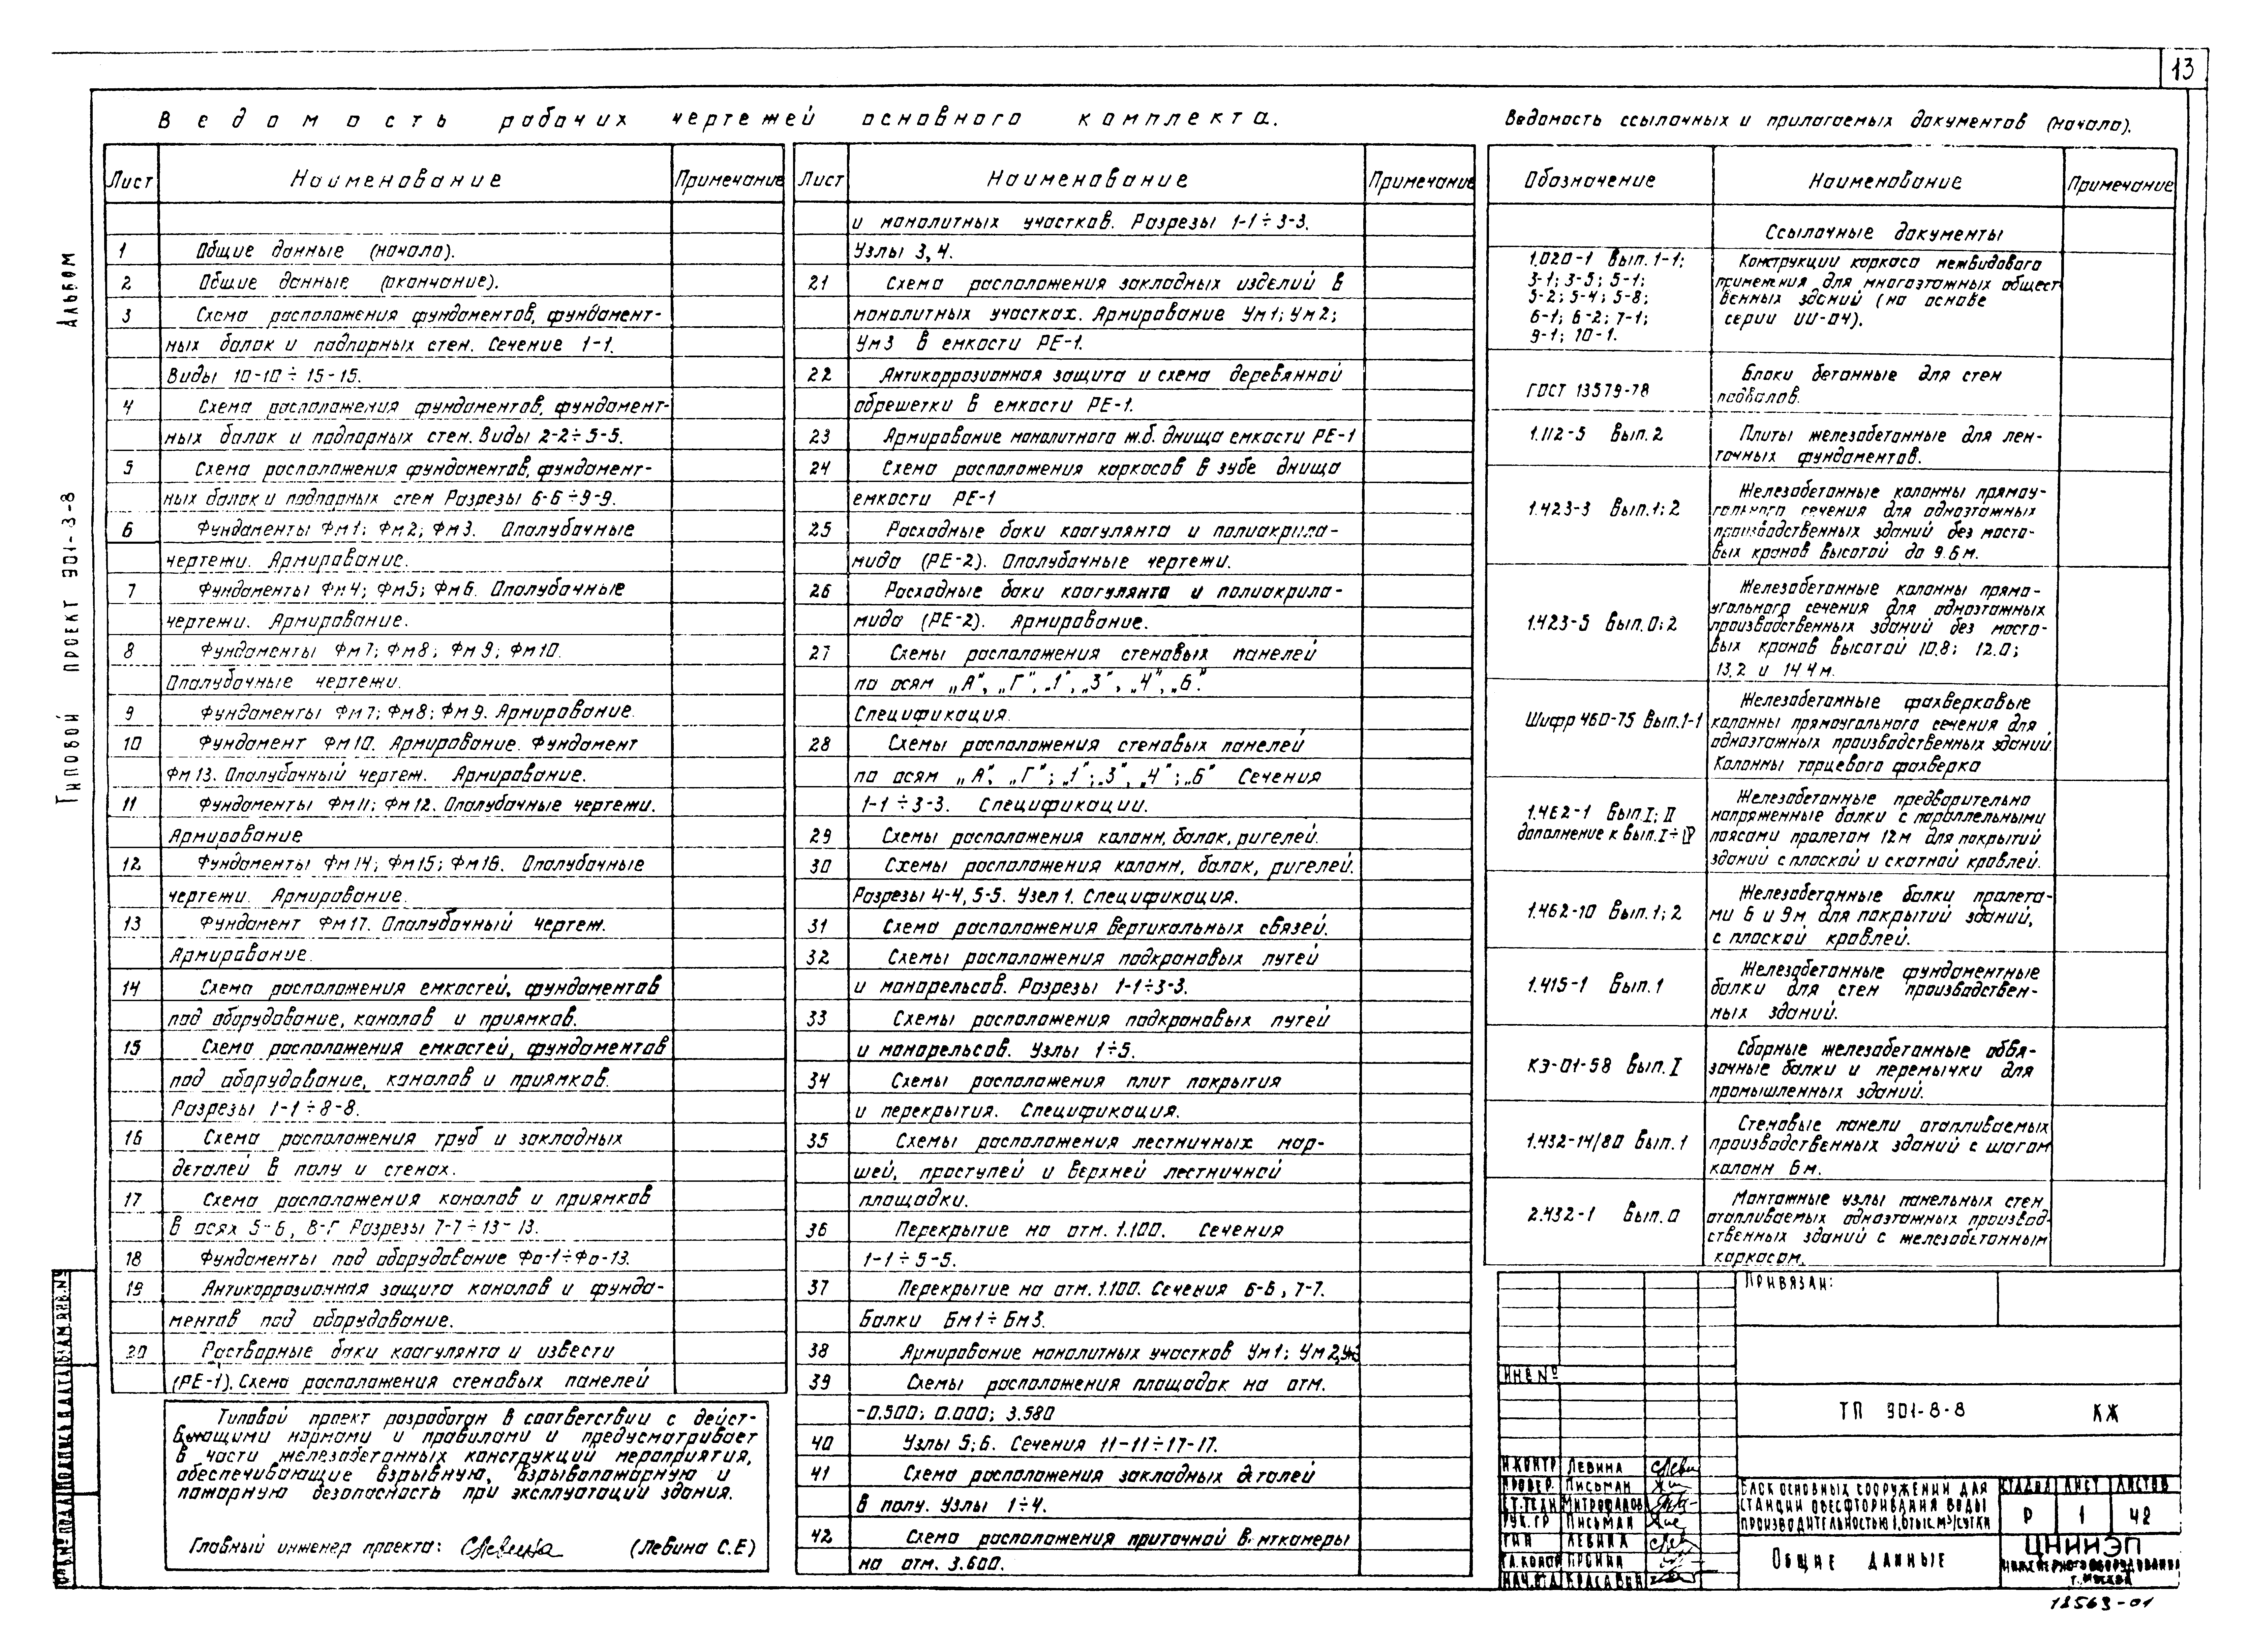 13
Ведомость рабочих чертежей основного комплекта.
Лист Наименование Примечание
1 Общие данные (начало).
2 Общие данные (окончание).
3 Схема расположения фундаментов, фундамент-
ных балок и подпорных стен. Сечение 1-1.
Виды 10-10÷15-15.
4 Схема расположения фундаментов, фундамент-
ных балок и подпорных стен. Виды 2-2÷5-5.
5 Схема расположения фундаментов, фундамент-
ных балок и подпорных стен Разрезы 6-6÷9-9.
6 Фундаменты Фм1; Фм2; Фм3. Опалубочные
чертежи. Армирование.
7 Фундаменты Фм4; Фм5; Фм6. Опалубочные
чертежи. Армирование.
8 Фундаменты Фм7; Фм8; Фм9; Фм10.
Опалубочные чертежи.
9 Фундаменты Фм7; Фм8; Фм9. Армирование.
10 Фундамент Фм10. Армирование. Фундамент
Фм13. Опалубочный чертеж. Армирование.
11 Фундаменты Фм11; Фм12. Опалубочные чертежи.
Армирование
12 Фундаменты Фм14; Фм15; Фм16. Опалубочные
чертежи. Армирование.
13 Фундамент Фм17. Опалубочный чертеж.
Армирование.
14 Схема расположения емкостей, фундаментов
под оборудование, каналов и приямков.
15 Схема расположения емкостей, фундаментов
под оборудование, каналов и приямков.
Разрезы 1-1÷8-8.
16 Схема расположения труб и закладных
деталей в полу и стенах.
17 Схема расположения каналов и приямков
в осях 5-6, В-Г Разрезы 7-7÷13-13.
18 Фундаменты под оборудование Фо-1÷Фо-13.
19 Антикоррозионная защита каналов и фунда-
ментов под оборудование.
20 Растворные баки коагулянта и извести
(РЕ-1). Схема расположения стеновых панелей
Лист Наименование Примечание
и монолитных участков. Разрезы 1-1÷3-3.
Узлы 3, 4.
21 Схема расположения закладных изделий в
монолитных участках. Армирование Ум1; Ум2;
Ум3 в емкости РЕ-1.
22 Антикоррозионная защита и схема деревянной
обрешетки в емкости РЕ-1.
23 Армирование монолитного ж.б. днища емкости РЕ-1
24 Схема расположения каркасов в зубе днища
емкости РЕ-1
25 Расходные баки коагулянта и полиакрила-
мида (РЕ-2). Опалубочные чертежи.
26 Расходные баки коагулянта и полиакрила-
мида (РЕ-2). Армирование.
27 Схемы расположения стеновых панелей
по осям „А", „Г", „1", „3", „4", „6".
Спецификация.
28 Схемы расположения стеновых панелей
по осям „А", „Г"; „1"; „3", „4"; „6" Сечения
1-1÷3-3. Спецификации.
29 Схемы расположения колонн, балок, ригелей.
30 Схемы расположения колонн, балок, ригелей.
Разрезы 4-4, 5-5. Узел 1. Спецификация.
31 Схема расположения вертикальных связей.
32 Схемы расположения подкрановых путей
и монорельсов. Разрезы 1-1÷3-3.
33 Схемы расположения подкрановых путей
и монорельсов. Узлы 1÷5.
34 Схемы расположения плит покрытия
и перекрытия. Спецификация.
35 Схемы расположения лестничных мар-
шей, проступей и верхней лестничной
площадки.
36 Перекрытие на отм. 1.100. Сечения
1-1÷5-5.
37 Перекрытие на отм. 1.100. Сечения 6-6, 7-7.
Балки Бм1÷Бм3.
38 Армирование монолитных участков Ум1; Ум2, Ум3
39 Схемы расположения площадок на отм.
-0.500; 0.000; 3.580
40 Узлы 5; 6. Сечения 11-11÷17-17.
41 Схема расположения закладных деталей
в полу. Узлы 1÷4.
42 Схема расположения приточной в нткамеры
на отм. 3.600.
Ведомость ссылочных и прилагаемых документов (начало).
Обозначение Наименование Примечание
Ссылочные документы
1.020-1 Вып. 1-1;
3-1; 3-5; 5-1;
5-2; 5-4; 5-8;
6-1; 6-2; 7-1;
9-1; 10-1.
Конструкции каркаса межвидового
применения для многоэтажных общест
венных зданий (на основе
серии ИИ-04).
ГОСТ 13579-78
Блоки бетонные для стен
подвалов.
1.112-5 Вып. 2
Плиты железобетонные для лен-
точных фундаментов.
1.423-3 Вып. 1; 2
Железобетонные колонны прямоу-
гольного сечения для одноэтажных
производственных зданий без мосто-
вых кранов высотой до 9.6м.
1.423-5 Вып. 0; 2
Железобетонные колонны прямо-
угольного сечения для одноэтажных
производственных зданий без мосто-
вых кранов высотой 10.8; 12.0;
13.2 и 14.4м.
Шифр 460-75 Вып. 1-1
Железобетонные фахверковые
колонны прямоугольного сечения для
одноэтажных производственных зданий.
Колонны торцевого фахверка
1.462-1 Вып. I; II
дополнение к вып. I÷IV
Железобетонные предварительно
напряженные балки с параллельными
поясами пролетом 12м для покрытий
зданий с плоской и скатной кровлей.
1.462-10 Вып. 1; 2
Железобетонные балки пролета-
ми 6 и 9м для покрытий зданий,
с плоской кровлей.
1.415-1 Вып. 1
Железобетонные фундаментные
балки для стен производствен-
ных зданий.
КЭ-01-58 Вып. I
Сборные железобетонные обвя-
зочные балки и перемычки для
промышленных зданий.
1.432-14/80 Вып. 1
Стеновые панели отапливаемых
производственных зданий с шагом
колонн 6м.
2.432-1 Вып. 0
Монтажные узлы панельных стен
отапливаемых одноэтажных производ-
ственных зданий с железобетонным
каркасом.
Типовой проект разработан в соответствии с дейст-
вующими нормами и правилами и предусматривает
в части железобетонных конструкций мероприятия,
обеспечивающие взрывную, взрывопожарную и
пожарную безопасность при эксплуатации здания.
Главный инженер проекта: (Левина С.Е)
Альбом
Типовой проект 901-3-8
Привязан:
Инв №
ТП 901-8-8 КЖ
Н.контр Левина
Провер. Письман
Ст.техн Митрофанов
Рук. гр Письман
ГИП Левина
Гл.констр Пронин
Нач.отд Красавин
Блок основных сооружений для
станции обесфторивания воды
производительностью 1.0 тыс. м³/сутки
Стадия Лист Листов
Р 1 42
Общие данные
ЦНИИЭП
инженерного оборудования
г. Москва
18563-01